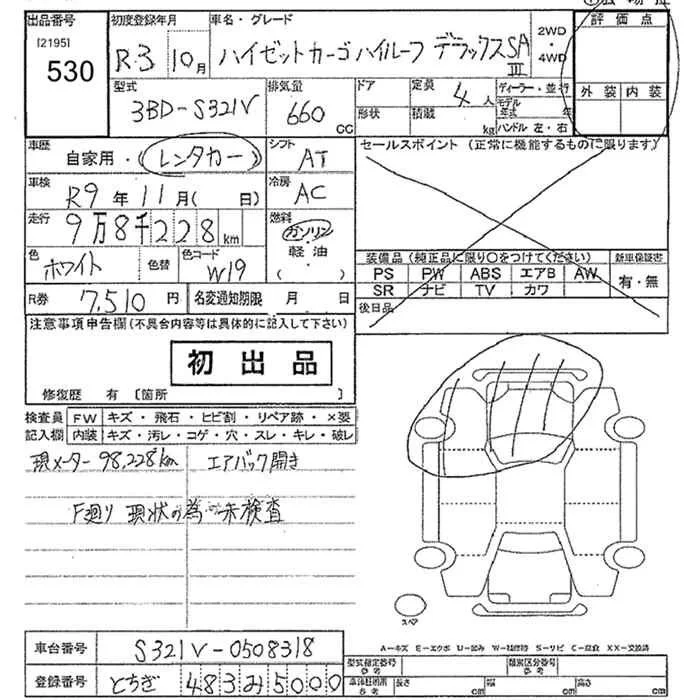 出品番号
[2195]
530
初度登録年月
R.3 10月
車名・グレード
ハイゼットカーゴ ハイルーフ デラックスSAⅢ
2WD
・
4WD
評価点
外装 内装
型式
3BD-S321V
排気量
660 cc
ドア
形状
定員
4人
積載
kg
ディーラー・並行
モデル年式 年
ハンドル 左・右
車歴
自家用・レンタカー( )
シフト
AT
セールスポイント (正常に機能するものに限ります)
車検
R9年11月( 日)
冷房
AC
走行
9万8千228km
燃料
ガソリン
・
軽油
( )
色
ホワイト
色替
色コード
W19
装備品(純正品に限り○をつけてください)
新車保証書
PS PW ABS エアB AW
有・無
SR ナビ TV カワ
R券
7,510円
名変通知期限 月 日
後日品
注意事項申告欄(不具合内容等は具体的に記入して下さい)
初出品
修復歴 有 〔箇所 〕
検査員
記入欄
FW キズ・飛石・ヒビ割・リペア跡・×要
内装 キズ・汚レ・コゲ・穴・スレ・キレ・破レ
現メーター 98,228km エアバック開き
F廻り 現状の為 未検査
スペア
車台番号
S321V-0508318
登録番号
とちぎ 483み5000
A-キズ E-エクボ U-凹み W-補修跡 S-サビ C-腐食 XX-交換済
型式指定番号
参考
類別区分番号
参考
車体証明用
参考
長さ cm
幅 cm
高さ cm